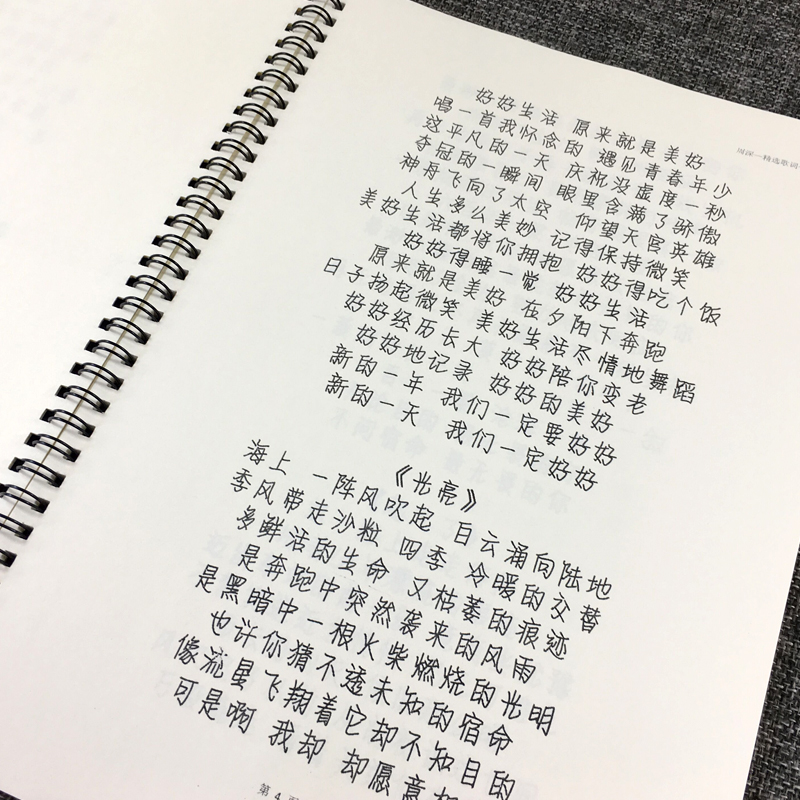 周深一精选歌词
好好生活 原来就是美好
唱一首我怀念的 遇见青春年少
这平凡的一天 庆祝没虚度一秒
夺冠的一瞬间 眼里含满了骄傲
神舟飞向了太空 仰望天宫英雄
人生多么美妙 记得保持微笑
美好生活都将你拥抱 好好得吃个饭
好好得睡一觉 好好生活
原来就是美好 在夕阳下奔跑
日子扬起微笑 美好生活尽情地舞蹈
好好经历长大 好好陪你变老
好好地记录 好好的美好
新的一年 我们一定要好好
新的一天 我们一定好好
《光亮》
海上 一阵风吹起 白云涌向陆地
季风带走沙粒 四季 冷暖的交替
多鲜活的生命 又枯萎的痕迹
是奔跑中突然袭来的风雨
是黑暗中一根火柴燃烧的光明
也许你猜不透未知的宿命
像流星飞翔着它却不知目的
可是啊 我却 却愿意
第 4